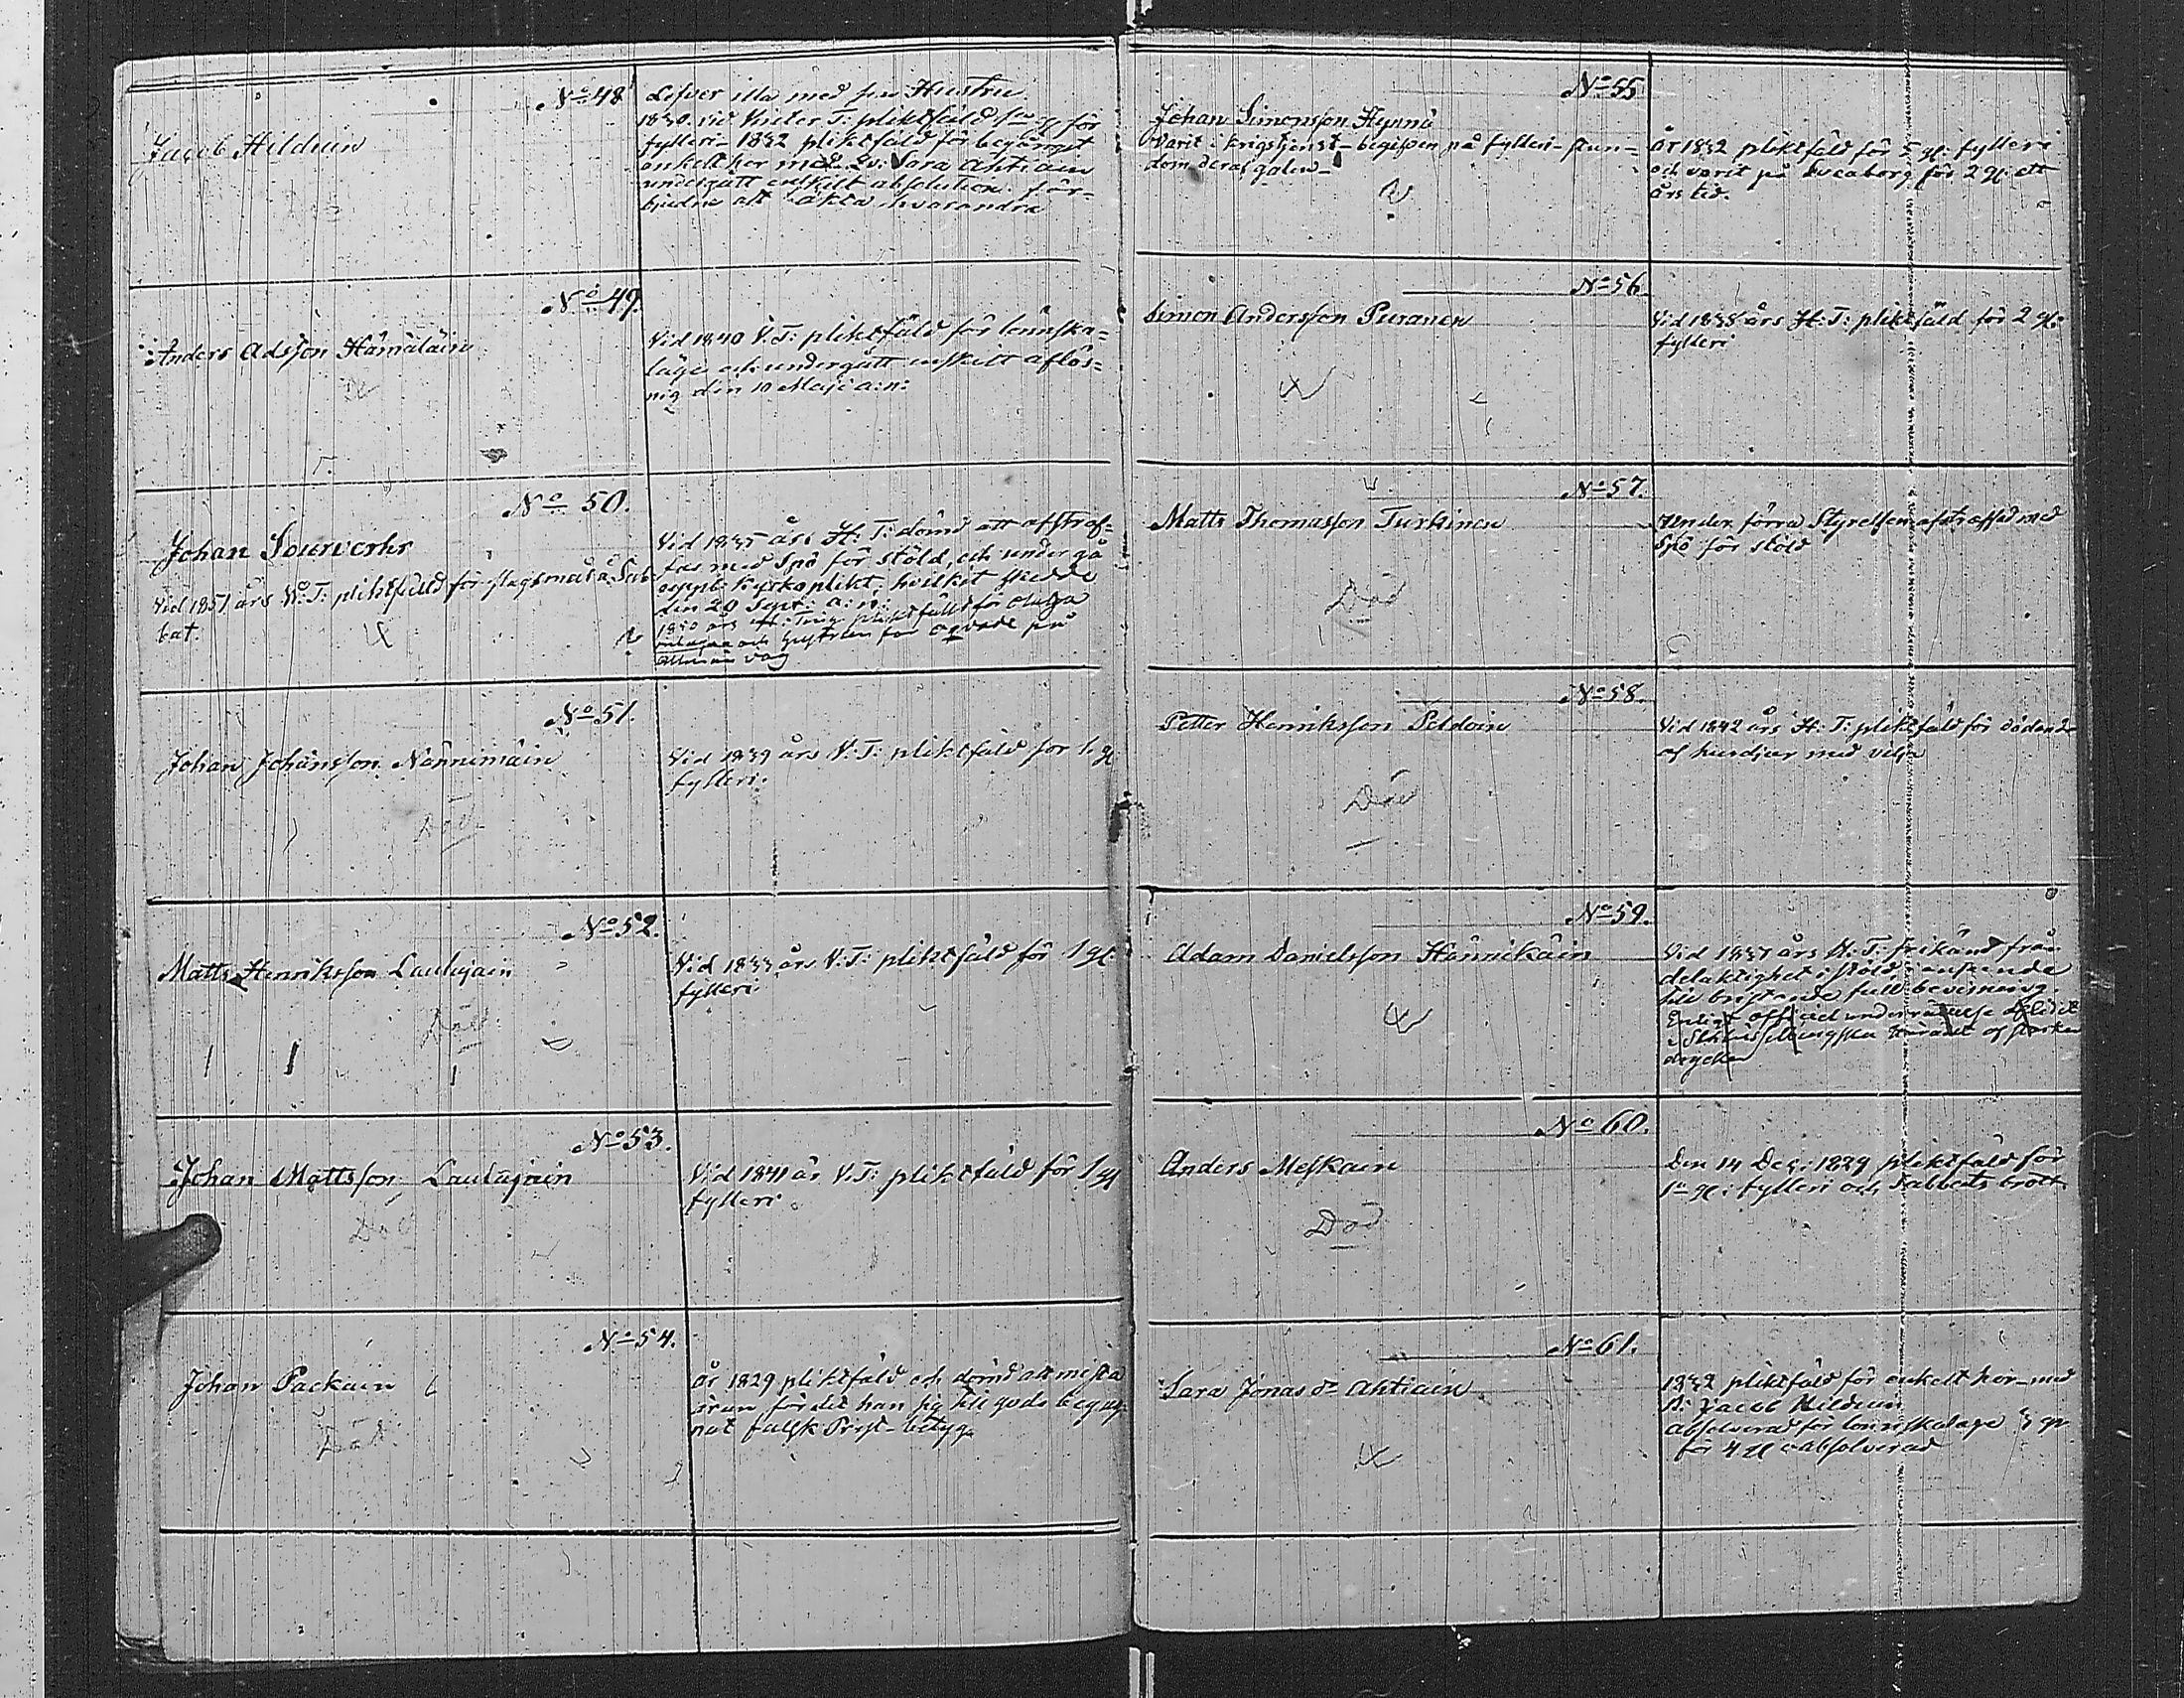 No 48
Jacob Hildúin
Lefver illa med sin Hustru
1830 vid Vinter T: pliktfäld för
fylleri - 1832 pliktfäld för begånget
enkelt hor med Sara Ahtiain
undergått enskilt absolution. för-
bjudne att äkta hvarandra
No 49.
Anders Adsson Hämäläin
Vid 1840 V.T: pliktfäld för lönnska-
läge och undergått enskilt aflös-
nig den 10 Maji a:n:
No 50.
Johan Sourverhr
Vid 1851 års V.T: pliktfäld för slagsmål å Sab-
bat.
Vid 1835 års H:T: dömd att afstraf-
fas med Spö för stöld, och undergå
uppb: kyrkoplikt, hvilket skedde
den 20 Sept: a:n:
1850 års H: Ting pliktfälld för olaga
och hustrun för oqväde på
allmän väg
No 51.
Johan Johansson Nännimäin
Död
Vid 1839 års V:T: pliktfäld för 1 g
fylleri:
No 52.
Matts Henriksson Laulajain
Död
Vid 1833 års V:T: pliktfäld för 1 g:
fylleri
No 53.
Johan Mattsson Laulajain
Död
Vid 1841 år V:T: pliktfäld för 1 g
fylleri
No 54.
Johan Packain
Död
År 1829 pliktfäld och dömd att mista
äran för det han sig till godo begag-
nat falsk Prest-betyg
No 55
Johan Simonsson Hynnä
Varit i krigstjenst - begifven på fylleri - stun-
dom deras galen -
År 1832 pliktfäld för 5 g: fylleri
och varit på Sveaborg för 2 g: ett
års tid.
No 56.
Simon Andersson Puranen
Vid 1838 års H:T: pliktfäld för 2 g:
fylleri
No 57.
Matts Thomasson Turkinen
Död
Under förra Styrelsen afstraffad med
Spö för stöld
No 58.
Petter Henriksson Peldoin
Död
Vid 1842 års H:T: pliktfäld för dödande
af husdjur med vilja
No 59.
Adam Danielsson Hännikäin
Vid 1837 års H:T: frikänd från
delaktighet i stöld, i anseende
till bristande full bevisning.
Enligt officiel underrättelse aflidit
i häradet af starka
drycker
No 60.
Anders Meskain
Död
Den 14 Dec: 1829 pliktfäld för
1a g: fylleri och Sabbats brott.
No 61.
Sara Jonas dr Ahtiain
1832 pliktfäld för enkelt hor - med
N: Jacob Hilduin
absolverad för lönnskaläge 3 g
för 4 g absolverad